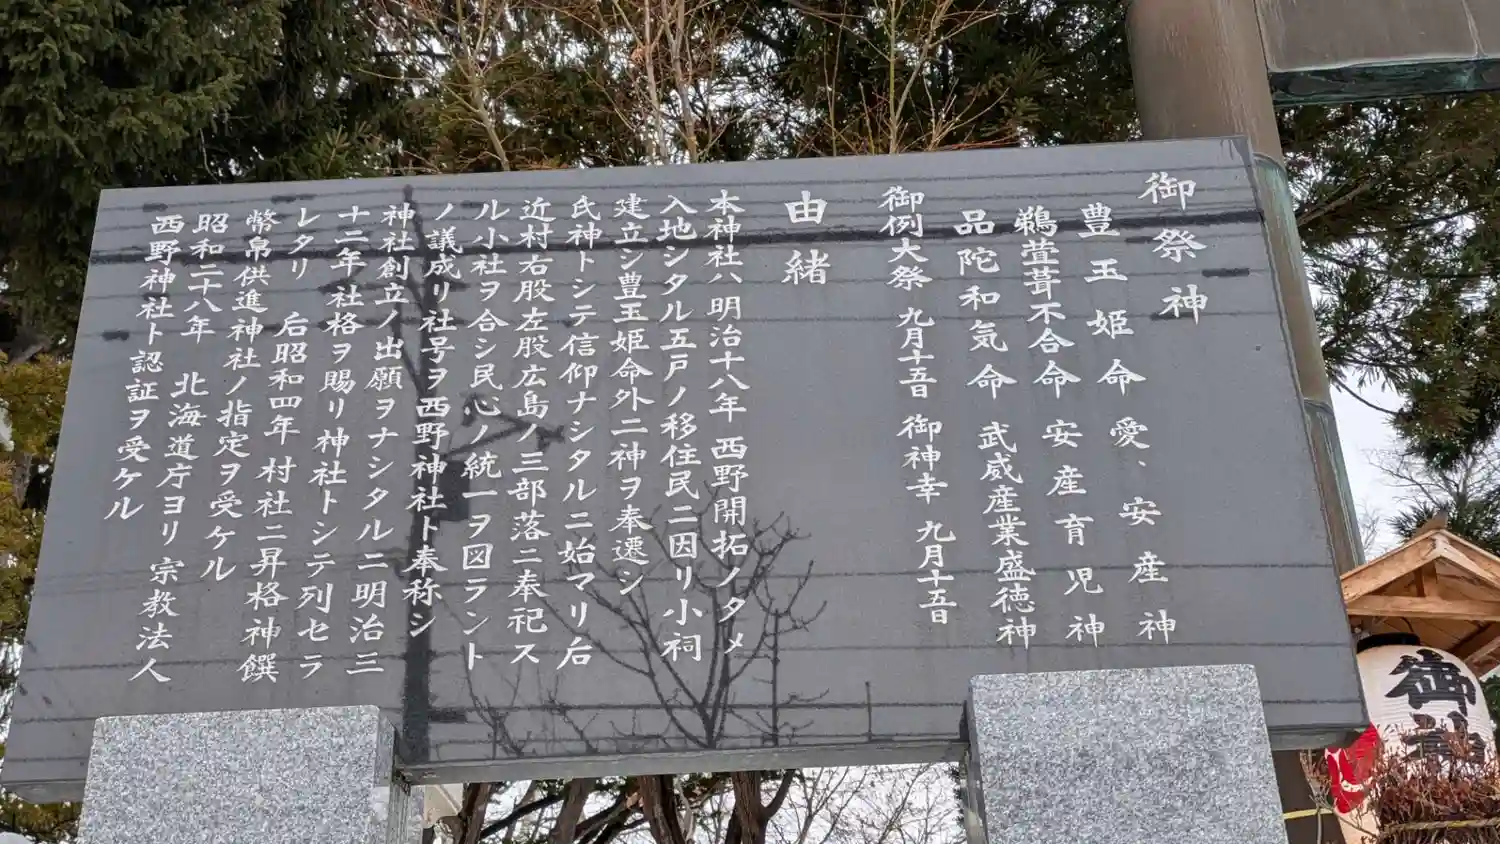 御祭神
豊玉姫命 愛、安産神
鵜萱葺不合命 安産育児神
品陀和気命 武威産業盛徳神
御例大祭 九月十五日 御神幸 九月十五日
由緒
本神社ハ明治十八年 西野開拓ノタメ
入地シタル五戸ノ移住民ニ因リ小祠
建立シ豊玉姫命外二神ヲ奉遷シ
氏神トシテ信仰ナシタルニ始マリ后
近村右股左股広島ノ三部落ニ奉祀ス
ル小社ヲ合シ民心ノ統一ヲ図ラント
ノ議成リ社号ヲ西野神社ト奉称シ
神社創立ノ出願ヲナシタルニ明治三
十二年社格ヲ賜リ神社トシテ列セラ
レタリ 后昭和四年 村社ニ昇格神饌
幣帛供進神社ノ指定ヲ受ケル
昭和二十八年 北海道庁ヨリ宗教法人
西野神社ト認証ヲ受ケル
御神